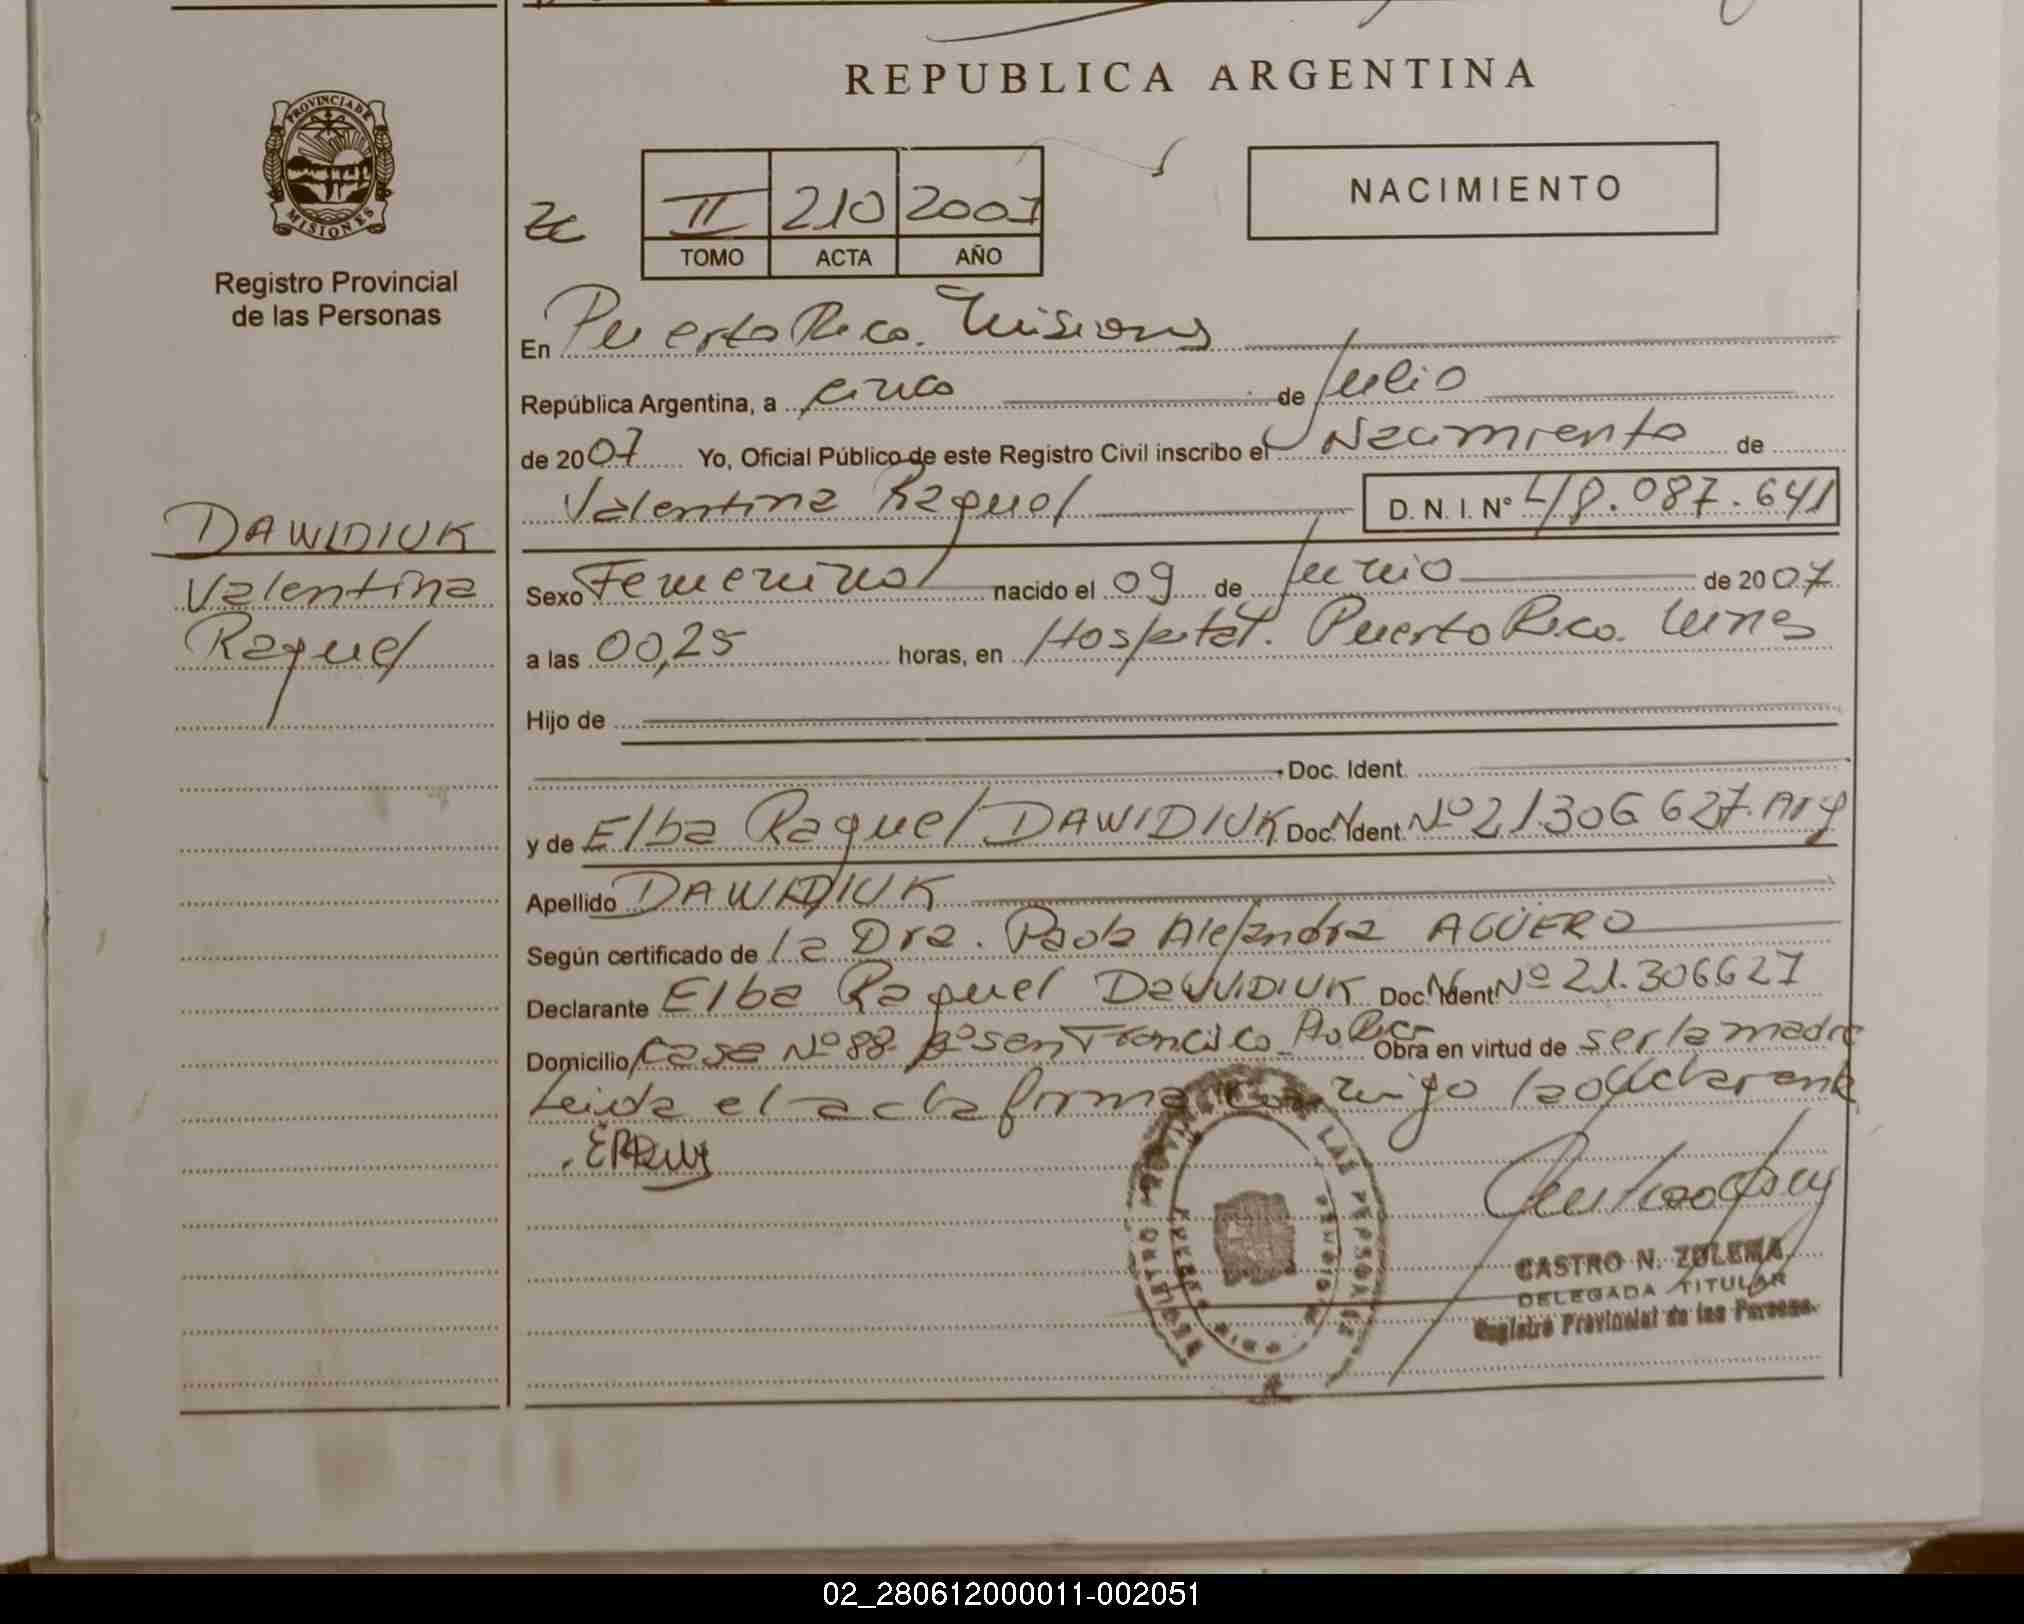 REPUBLICA ARGENTINA
PROVINCIA DE
MISIONES
Registro Provincial
de las Personas
II 210 2007
TOMO ACTA AÑO
NACIMIENTO
En Puerto Rico. Misiones
República Argentina, a cinco de Julio
de 2007 Yo, Oficial Público de este Registro Civil inscribo el Nacimiento de
Valentina Raquel D. N. I. Nº 48.087.641
DAWIDIUK
Valentina
Raquel
Sexo Femenino nacido el 09 de Junio de 2007
a las 00,25 horas, en Hospital. Puerto Rico. Mnes
Hijo de
Doc. Ident.
y de Elba Raquel DAWIDIUK Doc. Ident. Nº 21.306 627. Arg
Apellido DAWIDIUK
Según certificado de la Dra. Paola Alejandra AGÜERO
Declarante Elba Raquel DAWIDIUK Doc. Ident. Nº 21.306627
Domicilio Casa Nº 88 Bº San Francisco Obra en virtud de ser la madre
Leida el acta firma conmigo la declarante
CASTRO N. ZULEMA
DELEGADA TITULAR
Registro Provincial de las Personas
02_280612000011-002051